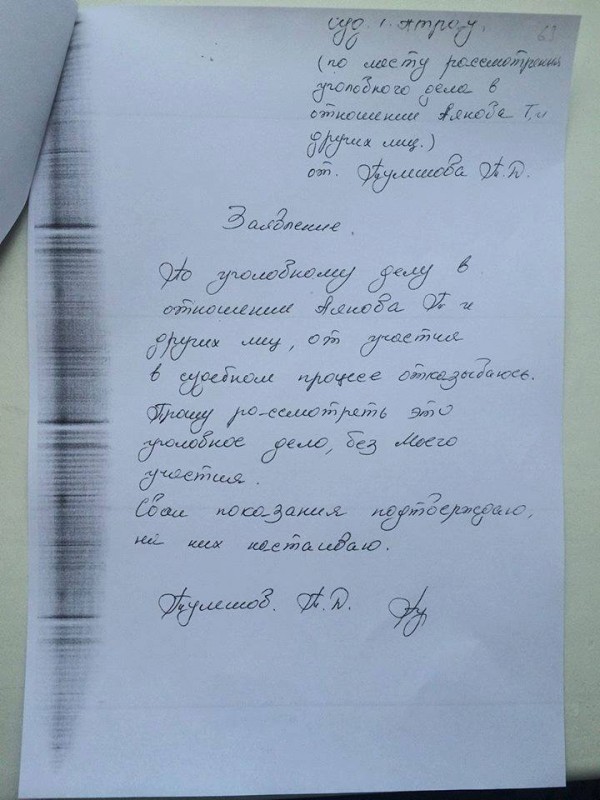 Суд г. Атырау.
(по месту рассмотрения
уголовного дела в
отношении Аякова Т, и
других лиц.)
от. П. Д.
Заявление.
По уголовному делу в
отношении Аякова и
других лиц, от участия
в судебном процессе отказываюсь.
Прошу рассмотреть это
уголовное дело, без моего
участия.
Свои показания подтверждаю,
на них настаиваю.
П. Д.